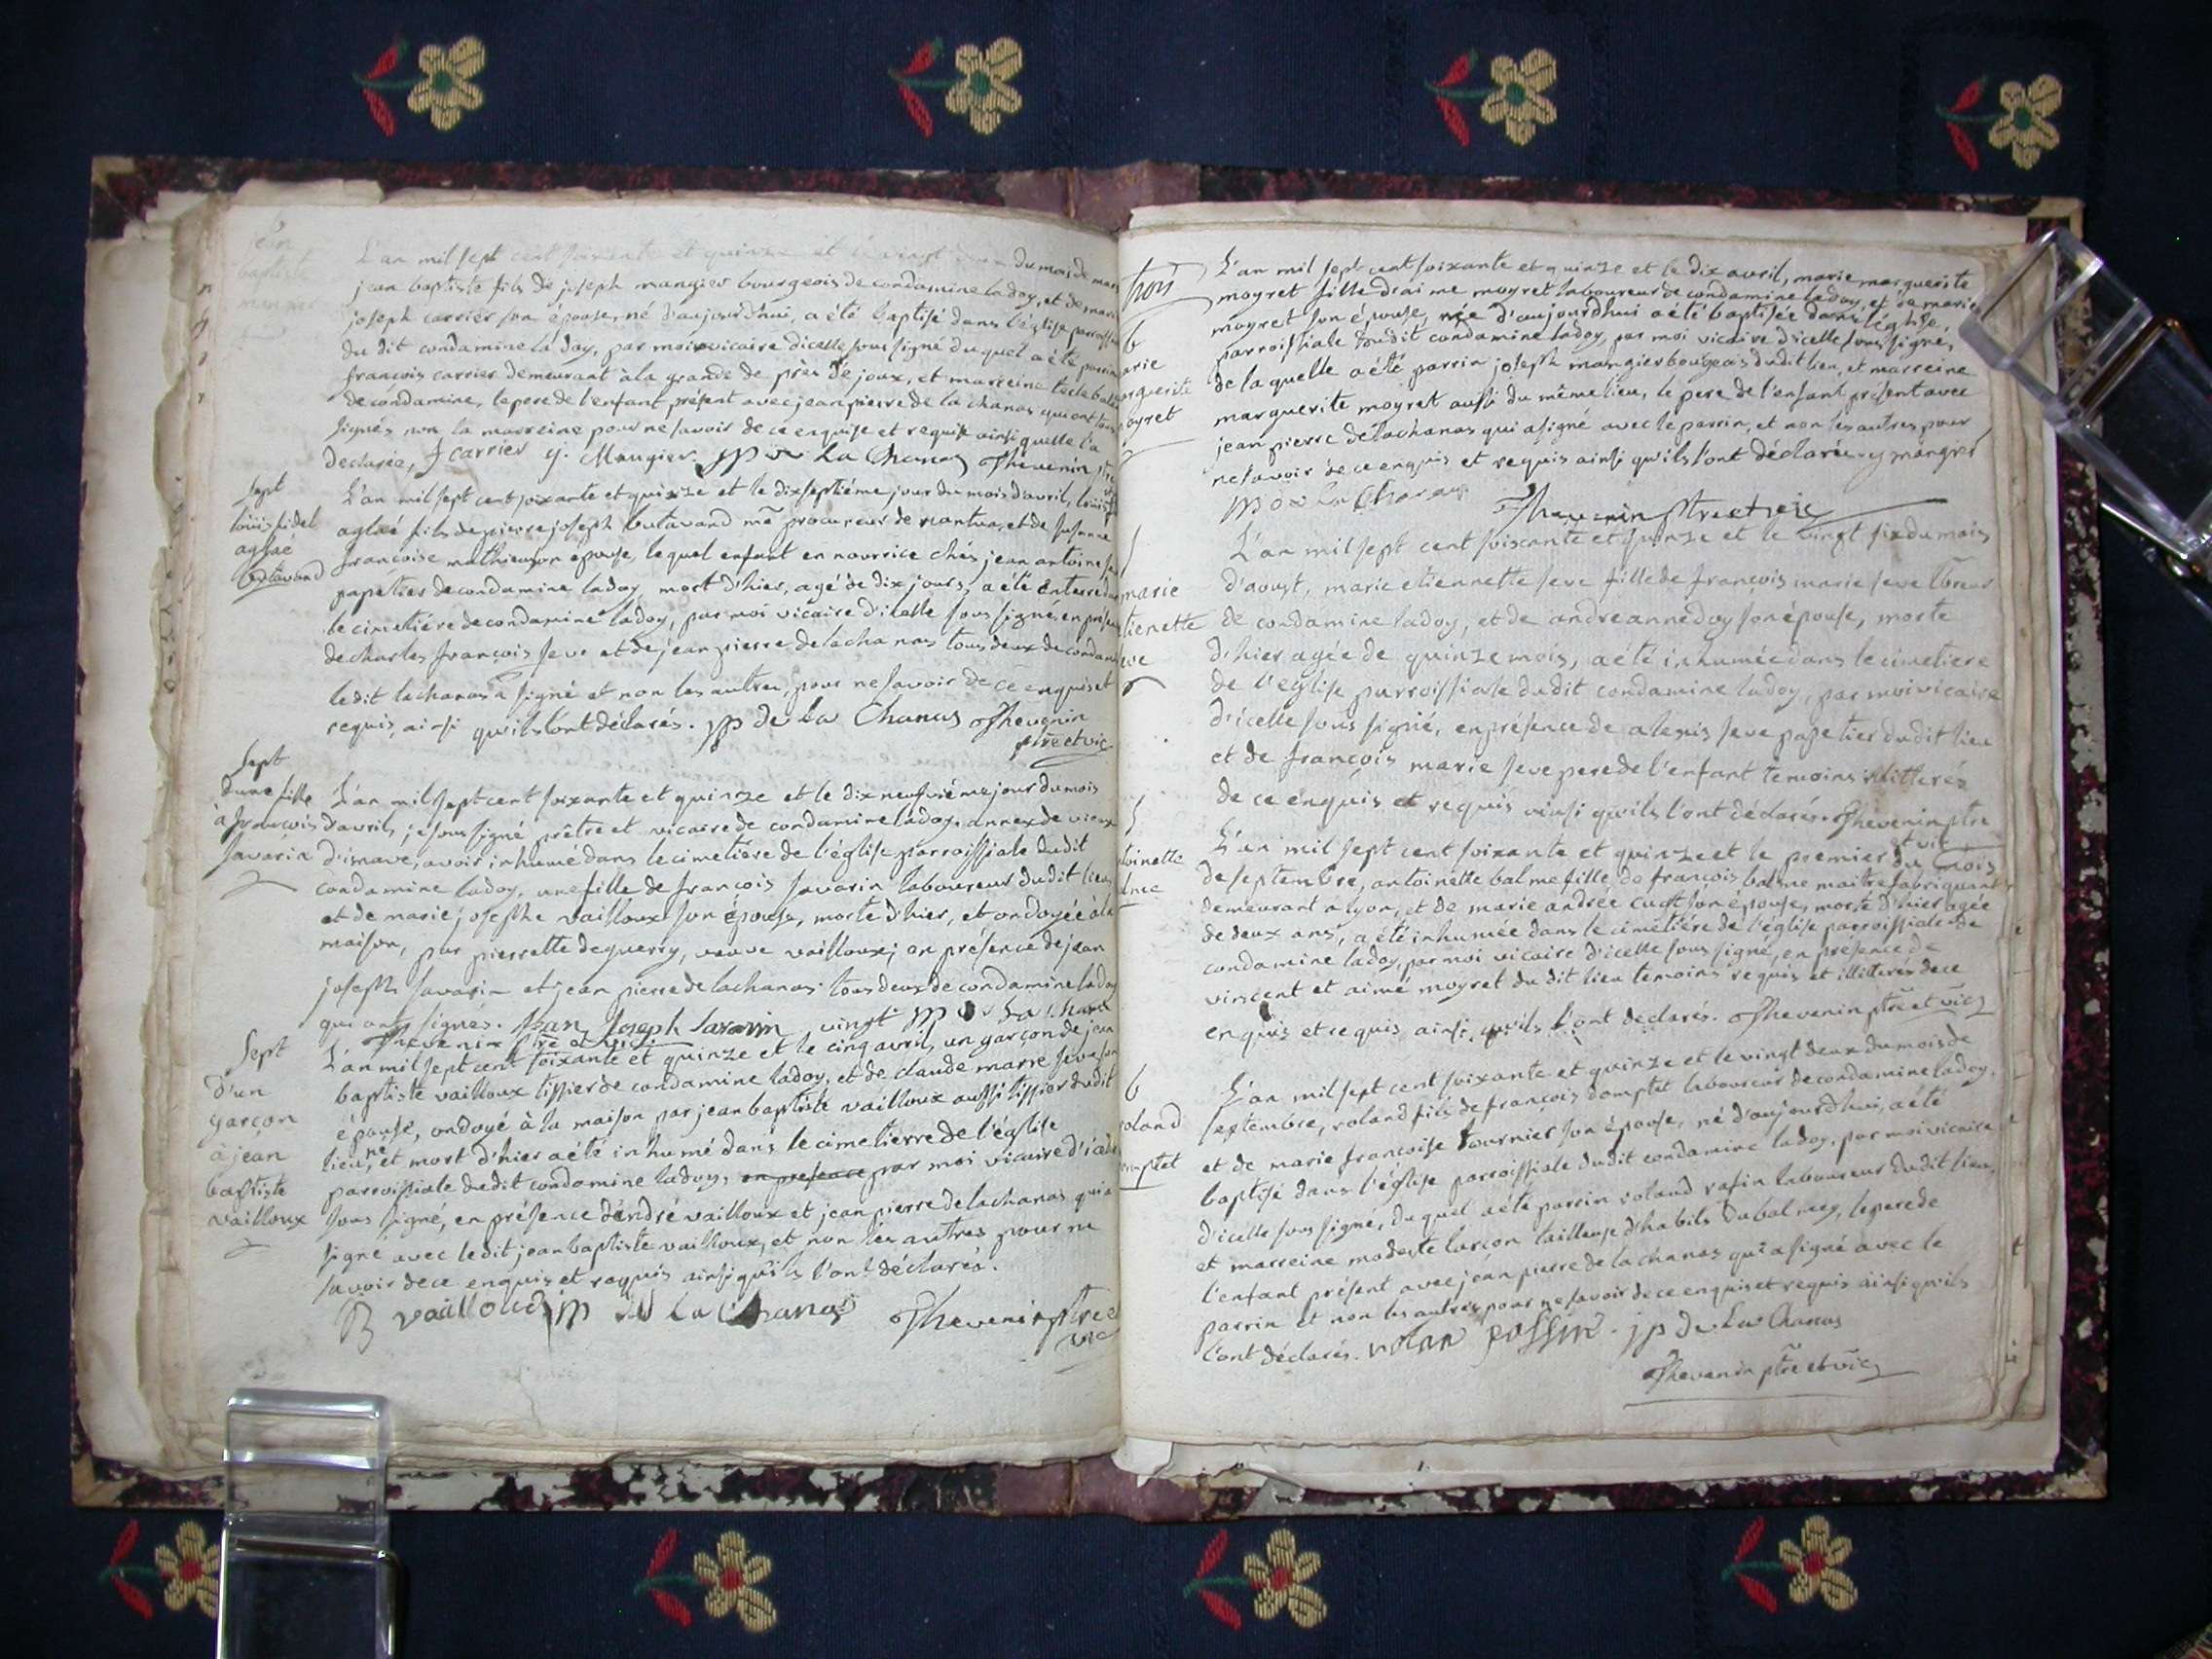 jean
baptiste
L'an mil sept cent soixante et quinze et le vingt du mois de mars
jean baptiste fils de joseph mangier bourgeois de condamine ladoy, et de marie
joseph carrier son épouse, né d'aujourd'hui, a été baptisé dans l'église parroissiale
du dit condamine la doy, par moi vicaire dicelle sous signé duquel a été parrin
françois carrier demeurant à la grande de près de joux, et marreine tecle
de condamine, le pere de l'enfant présent avec jean pierre de la chanas qui ont sous
signés non la marreine pour ne savoir de ce enquise et requise ainsi quelle l'a
declarée, f carrier j. Mangier. jp de La Chanas Thevenin ptre
Sept
louis fidel
aglaé
butavand
L'an mil sept cent soixante et quinze et le dix septiéme jour du mois d'avril, louis
aglaé fils de pierre joseph butavand me procureur de nantua, et de susanne
françoise mathieu son épouse, lequel enfant en nourrice chés jean antoine
papetier de condamine ladoy, mort d'hier, agé de dix jours, a été enterré dans
le cimetiére de condamine ladoy, par moi vicaire d'icelle sous signé, en présence
de charles françois seve et de jean pierre de lachanas tous deux de condamine
ledit lachanas a signé et non les autres, pour ne savoir de ce enquis et
requis, ainsi qu'ils l'ont déclarés. jp de La Chanas Thevenin
ptre et vic
Sept
d'une fille
à françois
savarin
L'an mil sept cent soixante et quinze et le dix neufviéme jour du mois
d'avril, je sous signé prêtre et vicaire de condamine ladoy, annexe de vieux
d'isnave, avoir inhumé dans le cimetiére de l'église parroissiale dudit
condamine ladoy, une fille de françois savarin laboureur dudit lieu
et de marie josephe vailloux son épouse, morte d'hier, et ondoyée à la
maison, par pierrette deguerry, veuve vailloux; en présence de jean
joseph savarin et jean pierre de lachanas tous deux de condamine ladoy
qui ont signés. Jean Joseph Savarin, vingt jp de La Chanas
Thevenin ptre et vic.
Sept
d'un
garçon
à jean
baptiste
vailloux
L'an mil sept cent soixante et quinze et le cinq avril, un garçon de jean
baptiste vailloux tissier de condamine ladoy, et de claude marre seve son
épouse, ondoyé à la maison par jean baptiste vailloux aussi tissier dudit
lieu, né et mort d'hier a été inhumé dans le cimetierre de l'église
parroissiale dudit condamine ladoy, en presence par moi vicaire d'icelle
sous signé, en présence d'andré vailloux et jean pierre de lachanas qui a
signé avec ledit jean baptiste vailloux, et non les autres pour ne
savoir de ce enquis et requis ainsi qu'ils l'ont déclarés.
B vailloud jp de La Chanas Thevenin ptre et
vic
b
arie
arguerite
oyret
L'an mil sept cent soixante et quinze et le dix avril, marie marguerite
moyret fille d'aimé moyret laboureur de condamine ladoy, et de marie
moyret son épouse, née d'aujourd'hui a été baptisée dans l'église,
parroissiale dudit condamine ladoy, par moi vicaire d'icelle sous signé,
de laquelle a été parrin joseph mangier bourgeois dudit lieu, et marreine
marguerite moyret aussi du même lieu, le pere de l'enfant présent avec
jean pierre de lachanas qui a signé avec le parrin, et non les autres pour
ne savoir de ce enquis et requis ainsi qu'ils l'ont déclarés. j mangier
jp de La Chanas Thevenin ptre et vic
S
marie
tienette
eve
L'an mil sept cent soixante et quinze et le vingt six du mois
d'aoust, marie etiennette seve fille de françois marie seve
de condamine ladoy, et de andreanne doy son épouse, morte
d'hier agée de quinze mois, a été inhumée dans le cimetiere
de l'eglise parroissiale dudit condamine ladoy, par moi vicaire
d'icelle sous signé, en présence de alexis seve papetier dudit lieu
et de françois marie seve pere de l'enfant temoins illitterés
de ce enquis et requis ainsi qu'ils l'ont déclarés. Thevenin ptre
et vic
S
toinette
lme
L'an mil sept cent soixante et quinze et le premier du mois
de septembre, antoinette balme fille de françois balme maitre fabriquant
demeurant à lyon, et de marie andrée cuat son épouse, morte d'hier agée
de deux ans, a été inhumée dans le cimétiére de l'église parroissiale de
condamine ladoy, par moi vicaire d'icelle sous signé, en présence de
vincent et aimé moyret du dit lieu temoins requis et illiterés de ce
enquis et requis ainsi qu'ils l'ont declarés. Thevenin ptre et vic
b
oland
omptet
L'an mil sept cent soixante et quinze et le vingt deux du mois de
septembre, roland fils de françois domptet laboureur de condamine ladoy,
et de marie françoise tournier son épouse, né d'aujourd'hui, a été
baptisé dans l'église parroissiale dudit condamine ladoy, par moi vicaire
d'icelle sous signé, duquel a été parrin roland rafin laboureur dudit lieu,
et marreine modeste larçon tailleuse d'habits du balmey, le pere de
l'enfant présent avec jean pierre de la chanas qui a signé avec le
parrin et non les autres pour ne savoir de ce enquis et requis ainsi qu'ils
l'ont déclarés. jp de La Chanas
Thevenin ptre et vic